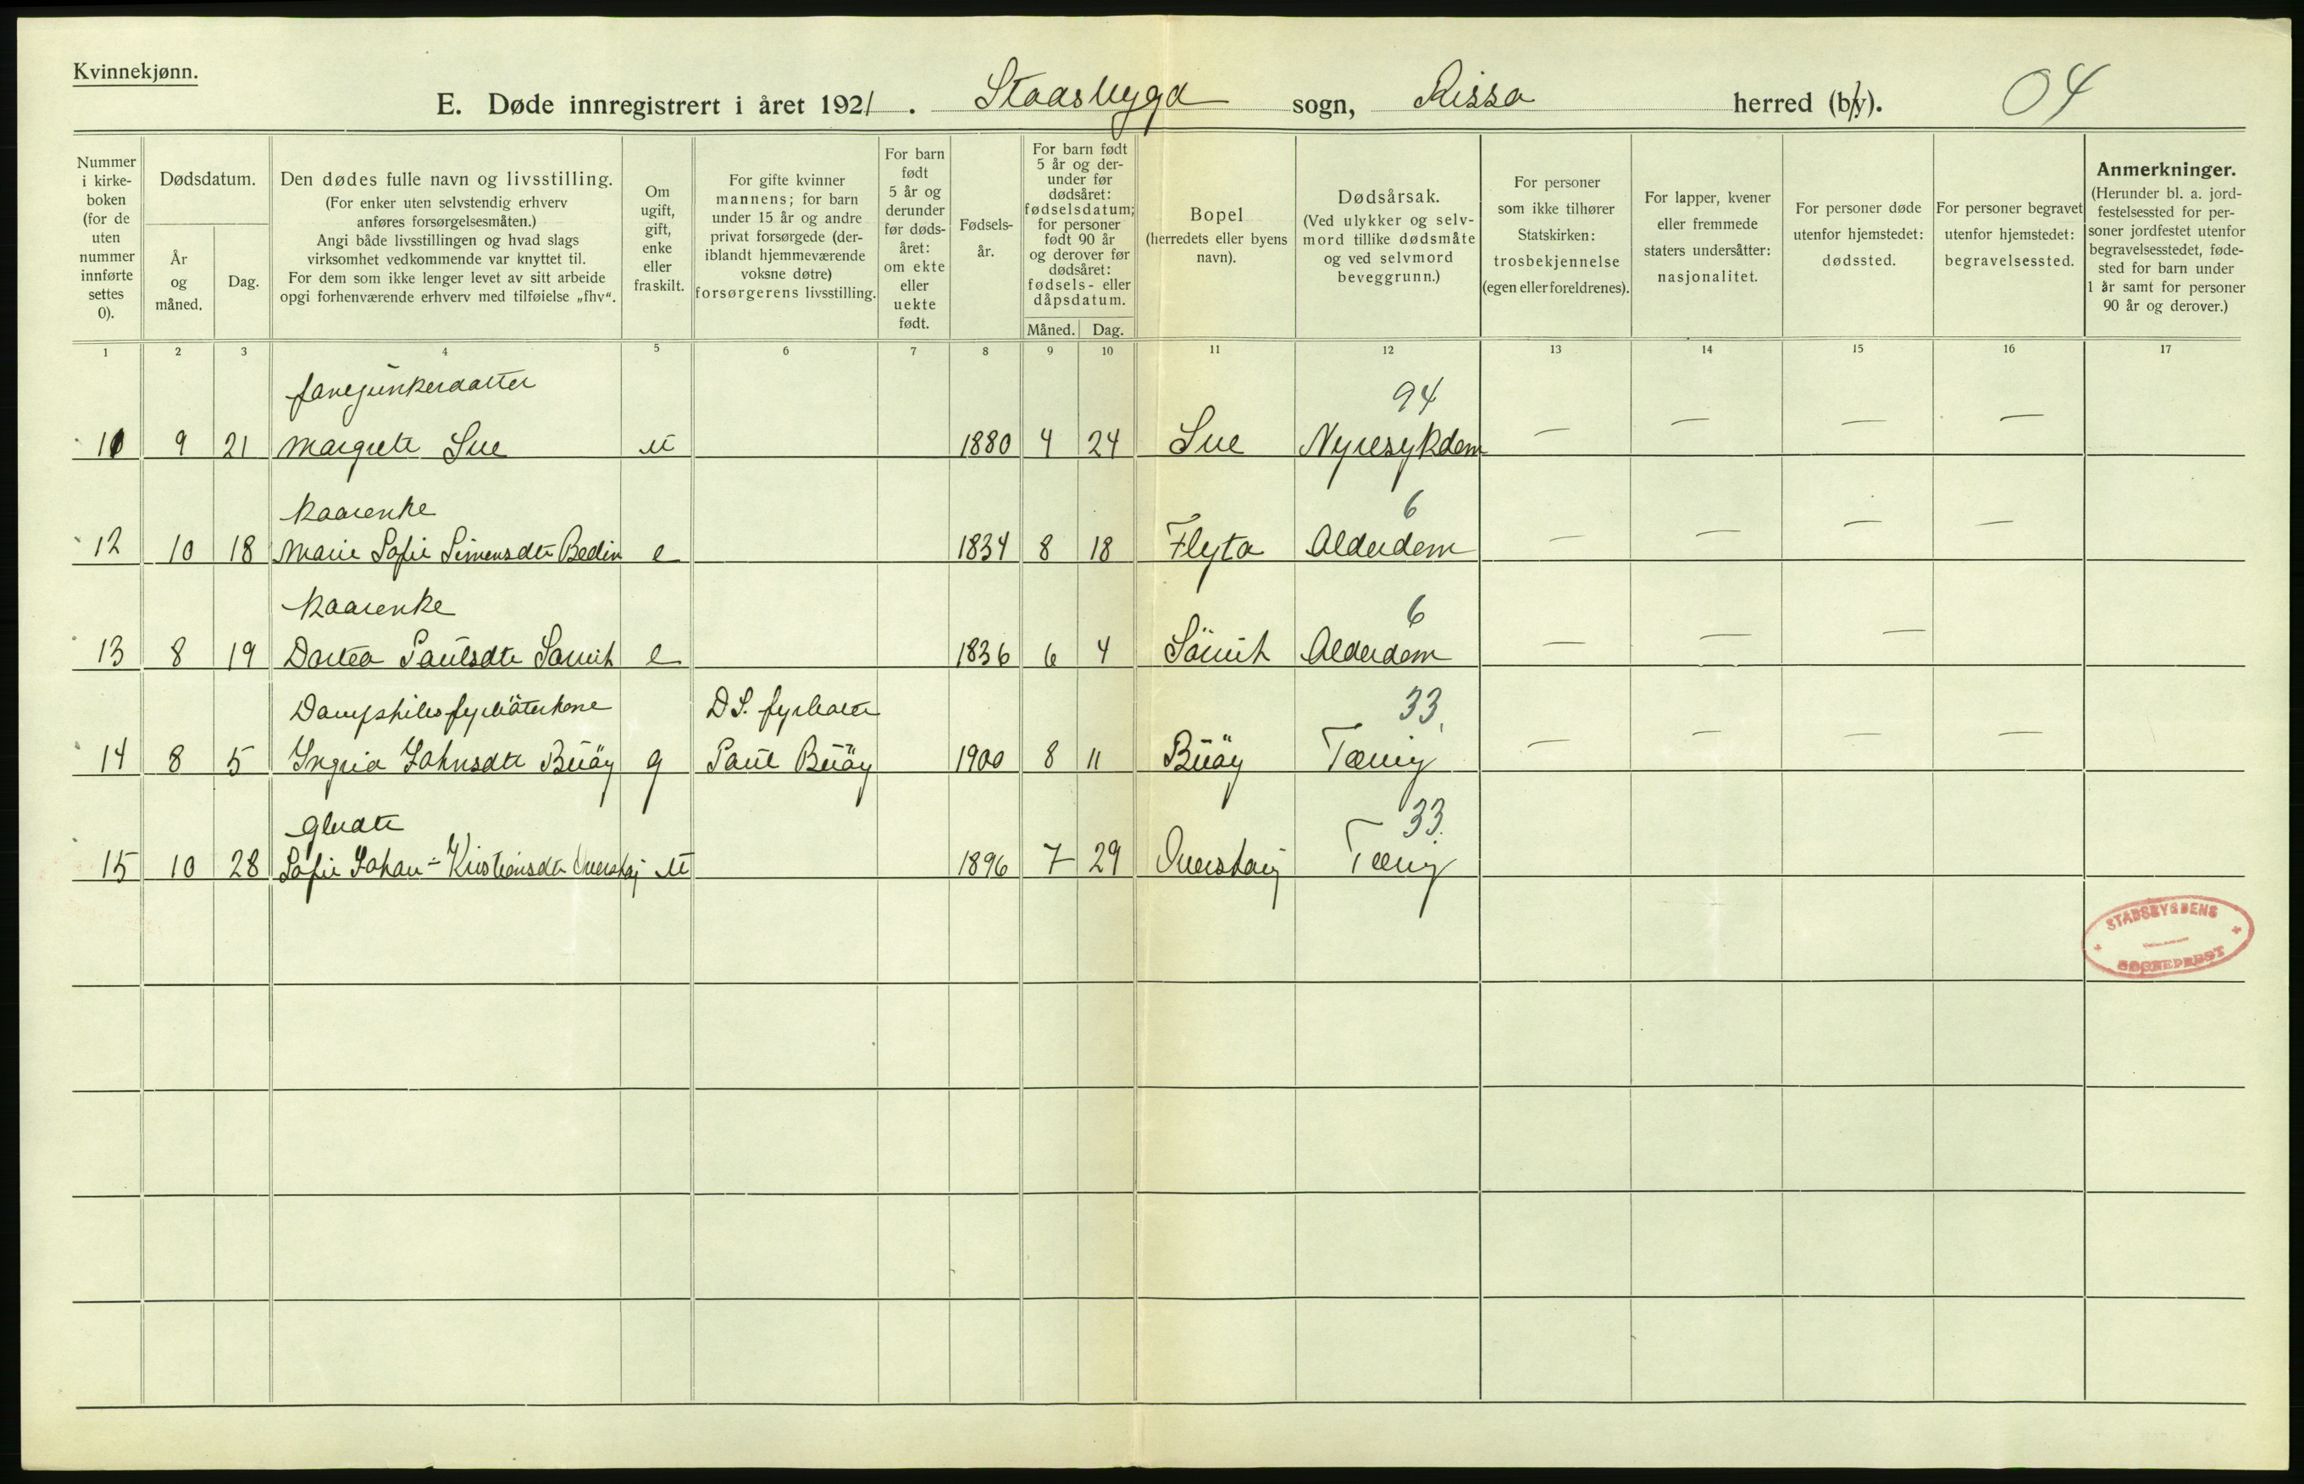 Kvinnekjønn.
E. Døde innregistrert i året 1921. Stadsbygd sogn, Rissa herred (by). 04
Nummer i kirke-boken (for de uten nummer innførte settes 0).
Dødsdatum.
År og måned.
Dag.
Den dødes fulle navn og livsstilling.
(For enker uten selvstendig erhverv
anføres forsørgelsesmåten.)
Angi både livsstillingen og hvad slags
virksomhet vedkommende var knyttet til.
For dem som ikke lenger levet av sitt arbeide
opgi forhenværende erhverv med tilføielse „fhv“.
Om ugift, gift, enke eller fraskilt.
For gifte kvinner
mannens; for barn
under 15 år og andre
privat forsørgede (der-
iblandt hjemmeværende
voksne døtre)
forsørgerens livsstilling.
For barn født 5 år og derunder før døds-året: om ekte eller uekte født.
Fødsels-år.
For barn født
5 år og der-
under før
dødsåret:
fødselsdatum;
for personer
født 90 år
og derover før
dødsåret:
fødsels- eller
dåpsdatum.
Måned. Dag.
Bopel
(herredets eller byens
navn).
Dødsårsak.
(Ved ulykker og selv-
mord tillike dødsmåte
og ved selvmord
beveggrunn.)
For personer
som ikke tilhører
Statskirken:
trosbekjennelse
(egen eller foreldrenes).
For lapper, kvener
eller fremmede
staters undersåtter:
nasjonalitet.
For personer døde
utenfor hjemstedet:
dødssted.
For personer begravet
utenfor hjemstedet:
begravelsessted.
Anmerkninger.
(Herunder bl. a. jord-
festelsessted for per-
soner jordfestet utenfor
begravelsesstedet, føde-
sted for barn under
1 år samt for personer
90 år og derover.)
1 2 3 4 5 6 7 8 9 10 11 12 13 14 15 16 17
fanejunkerdatter 94
11 9 21 Margrete Sue u 1880 4 24 Sue Nyresykdom — — — —
Kaarenke 6
12 10 18 Marie Sofie Simensdtr Bedin e 1834 8 18 Flyta Alderdom — — — —
Kaarenke 6
13 8 19 Dortea Paulsdtr e 1836 6 4 Alderdom — — —
D.S. fyrbøter 33
14 8 5 Johnsdtr Buøy g Paul Buøy 1900 8 11 Buøy Tæring — — — —
Gbrdtr 33
15 10 28 Sofie Johan-Kristiansdtr Overskaug u 1896 7 29 Overskaug Tæring
STADSBYGDENS
SOGNEPREST